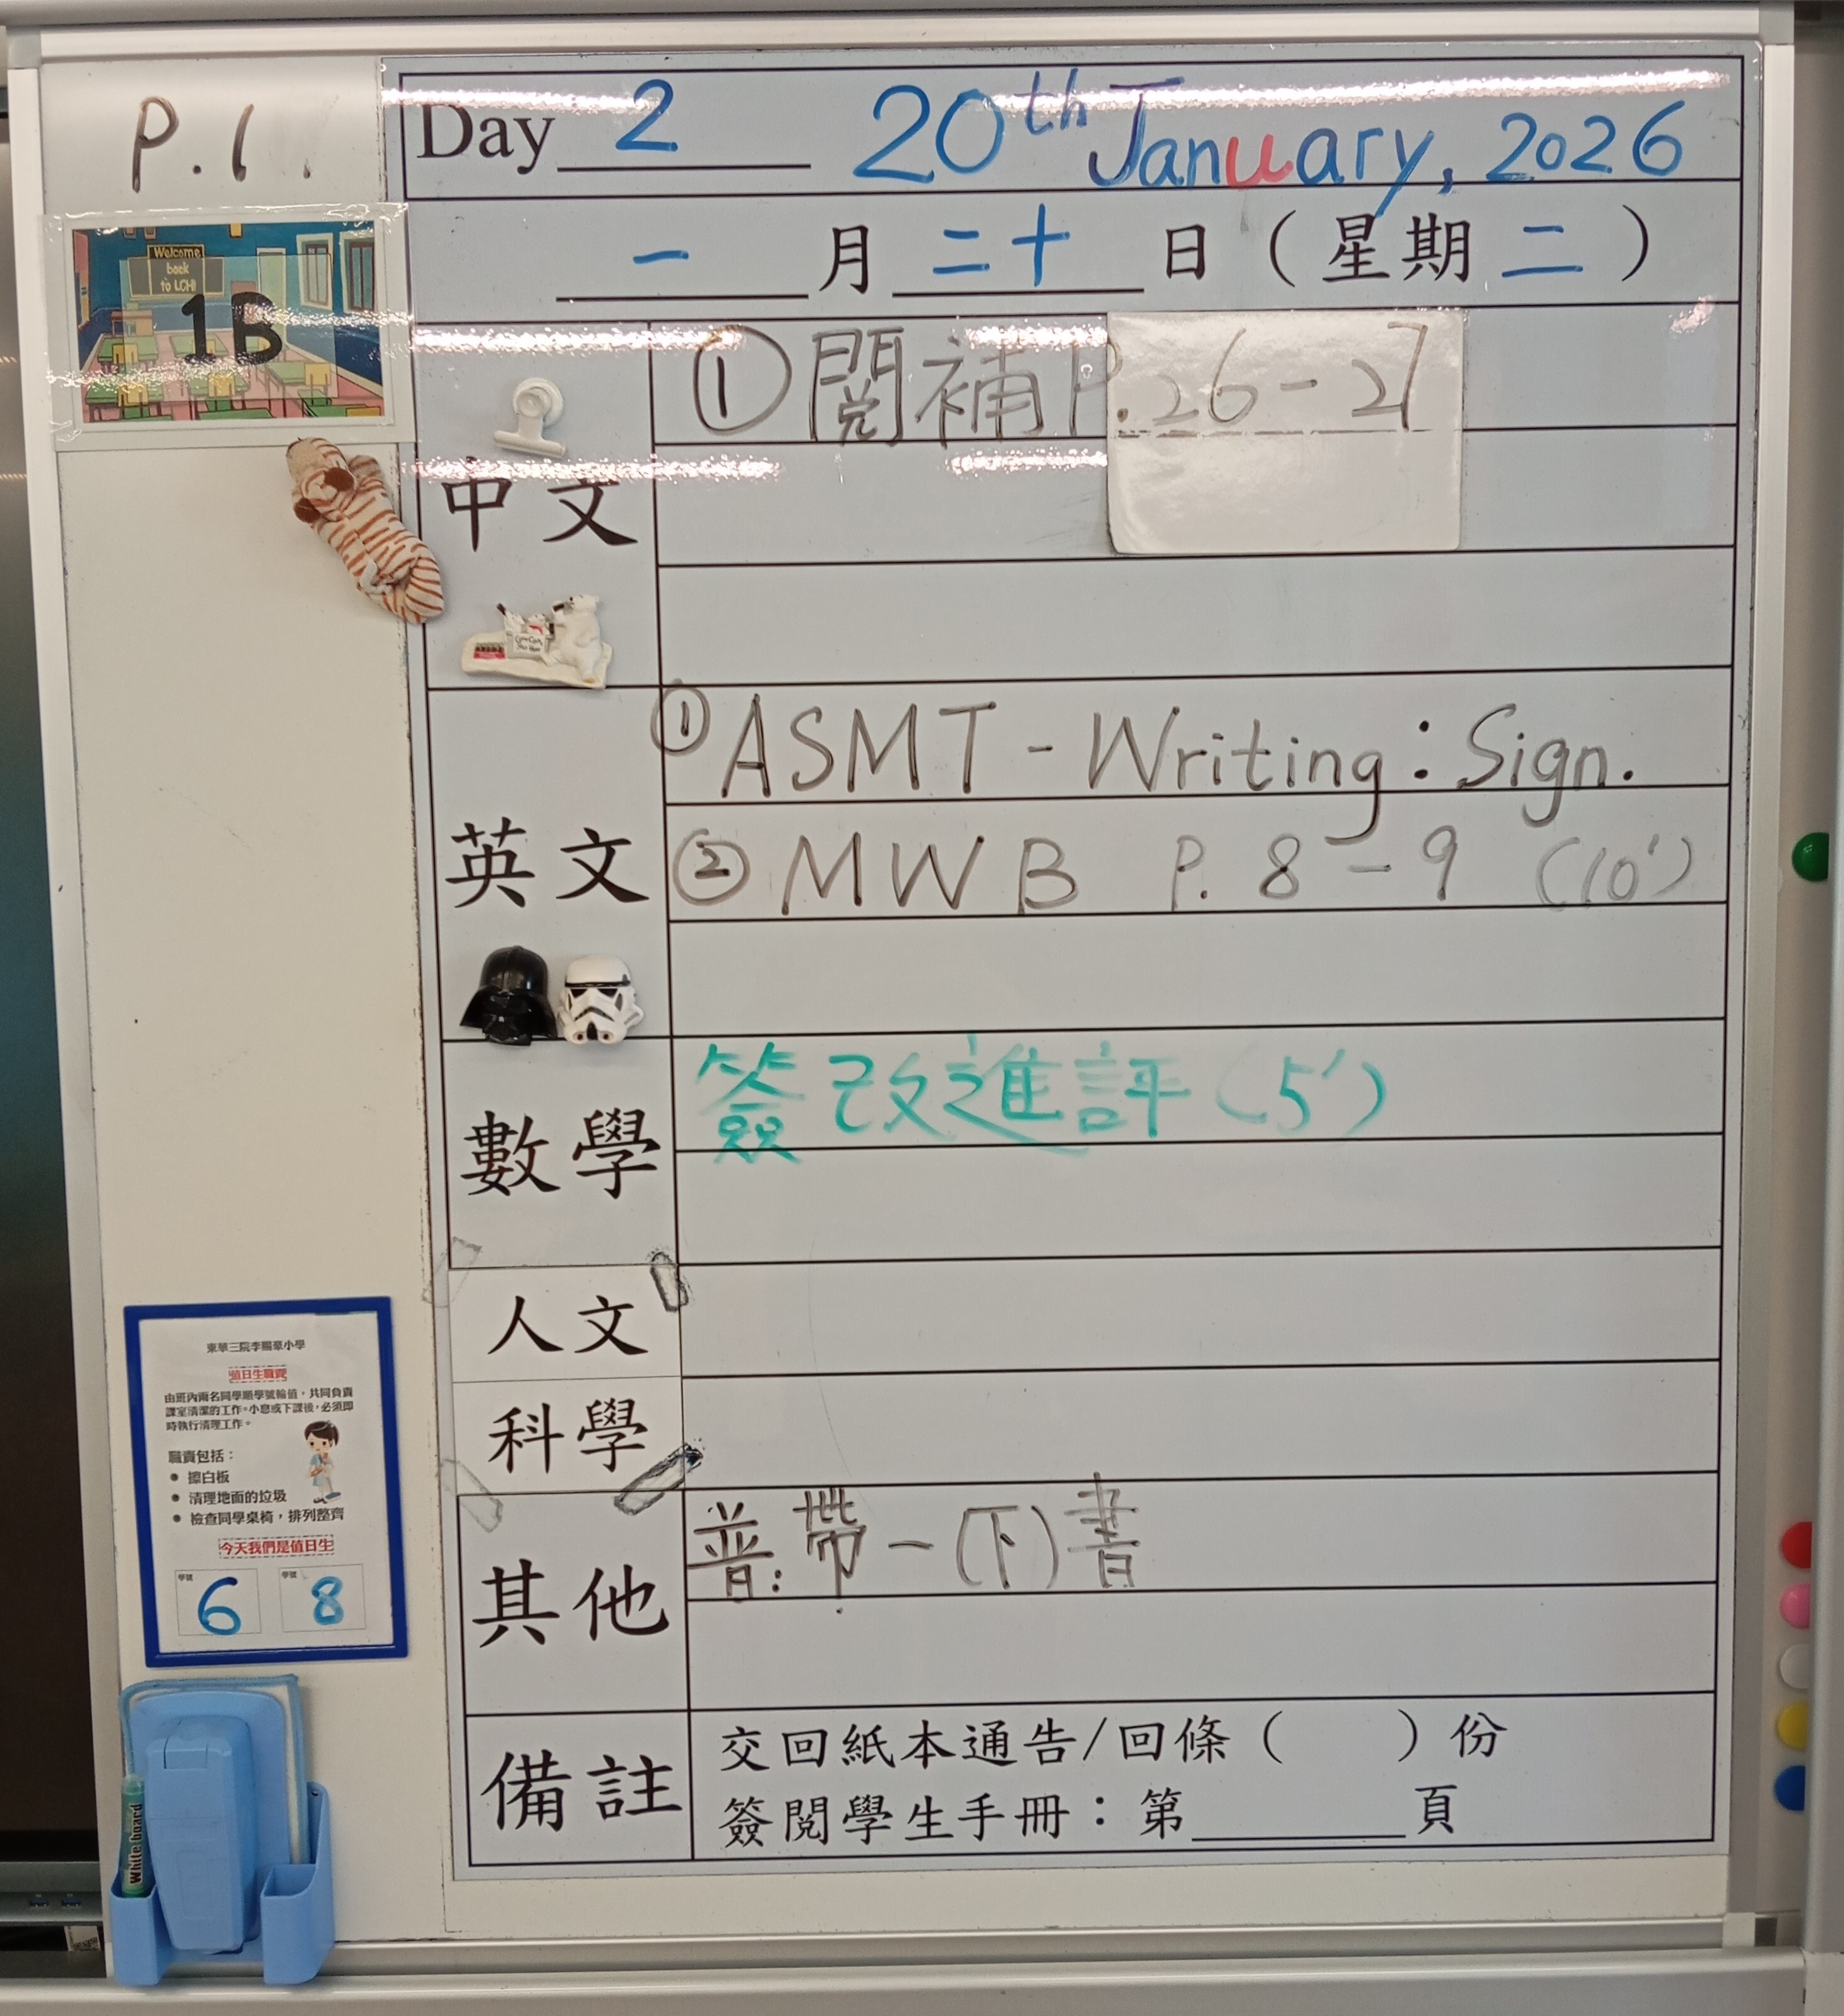 P.1.
Day 2 20th January, 2026
一 月 二十 日 (星期 二)
Welcome
back
to LCH
1B
中文
① 閱補 P.26-27
英文
① ASMT - Writing : Sign.
② MWB P. 8-9 (10')
數學
簽改進評 (5')
人文
科學
其他
普: 帶一(下)書
備註
交回紙本通告/回條( )份
簽閱學生手冊:第______頁
東華三院李賜豪小學
值日生職責
由班內兩名同學順學號輪值,共同負責
課室清潔的工作。小息或下課後,必須即
時執行清理工作。
職責包括:
● 擦白板
● 清理地面的垃圾
● 檢查同學桌椅,排列整齊
今天我們是值日生
學號 6 學號 8
White board